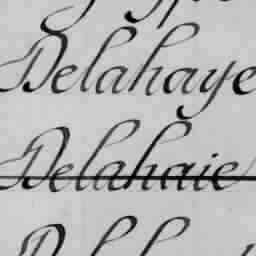 Delahaye
Delahaie